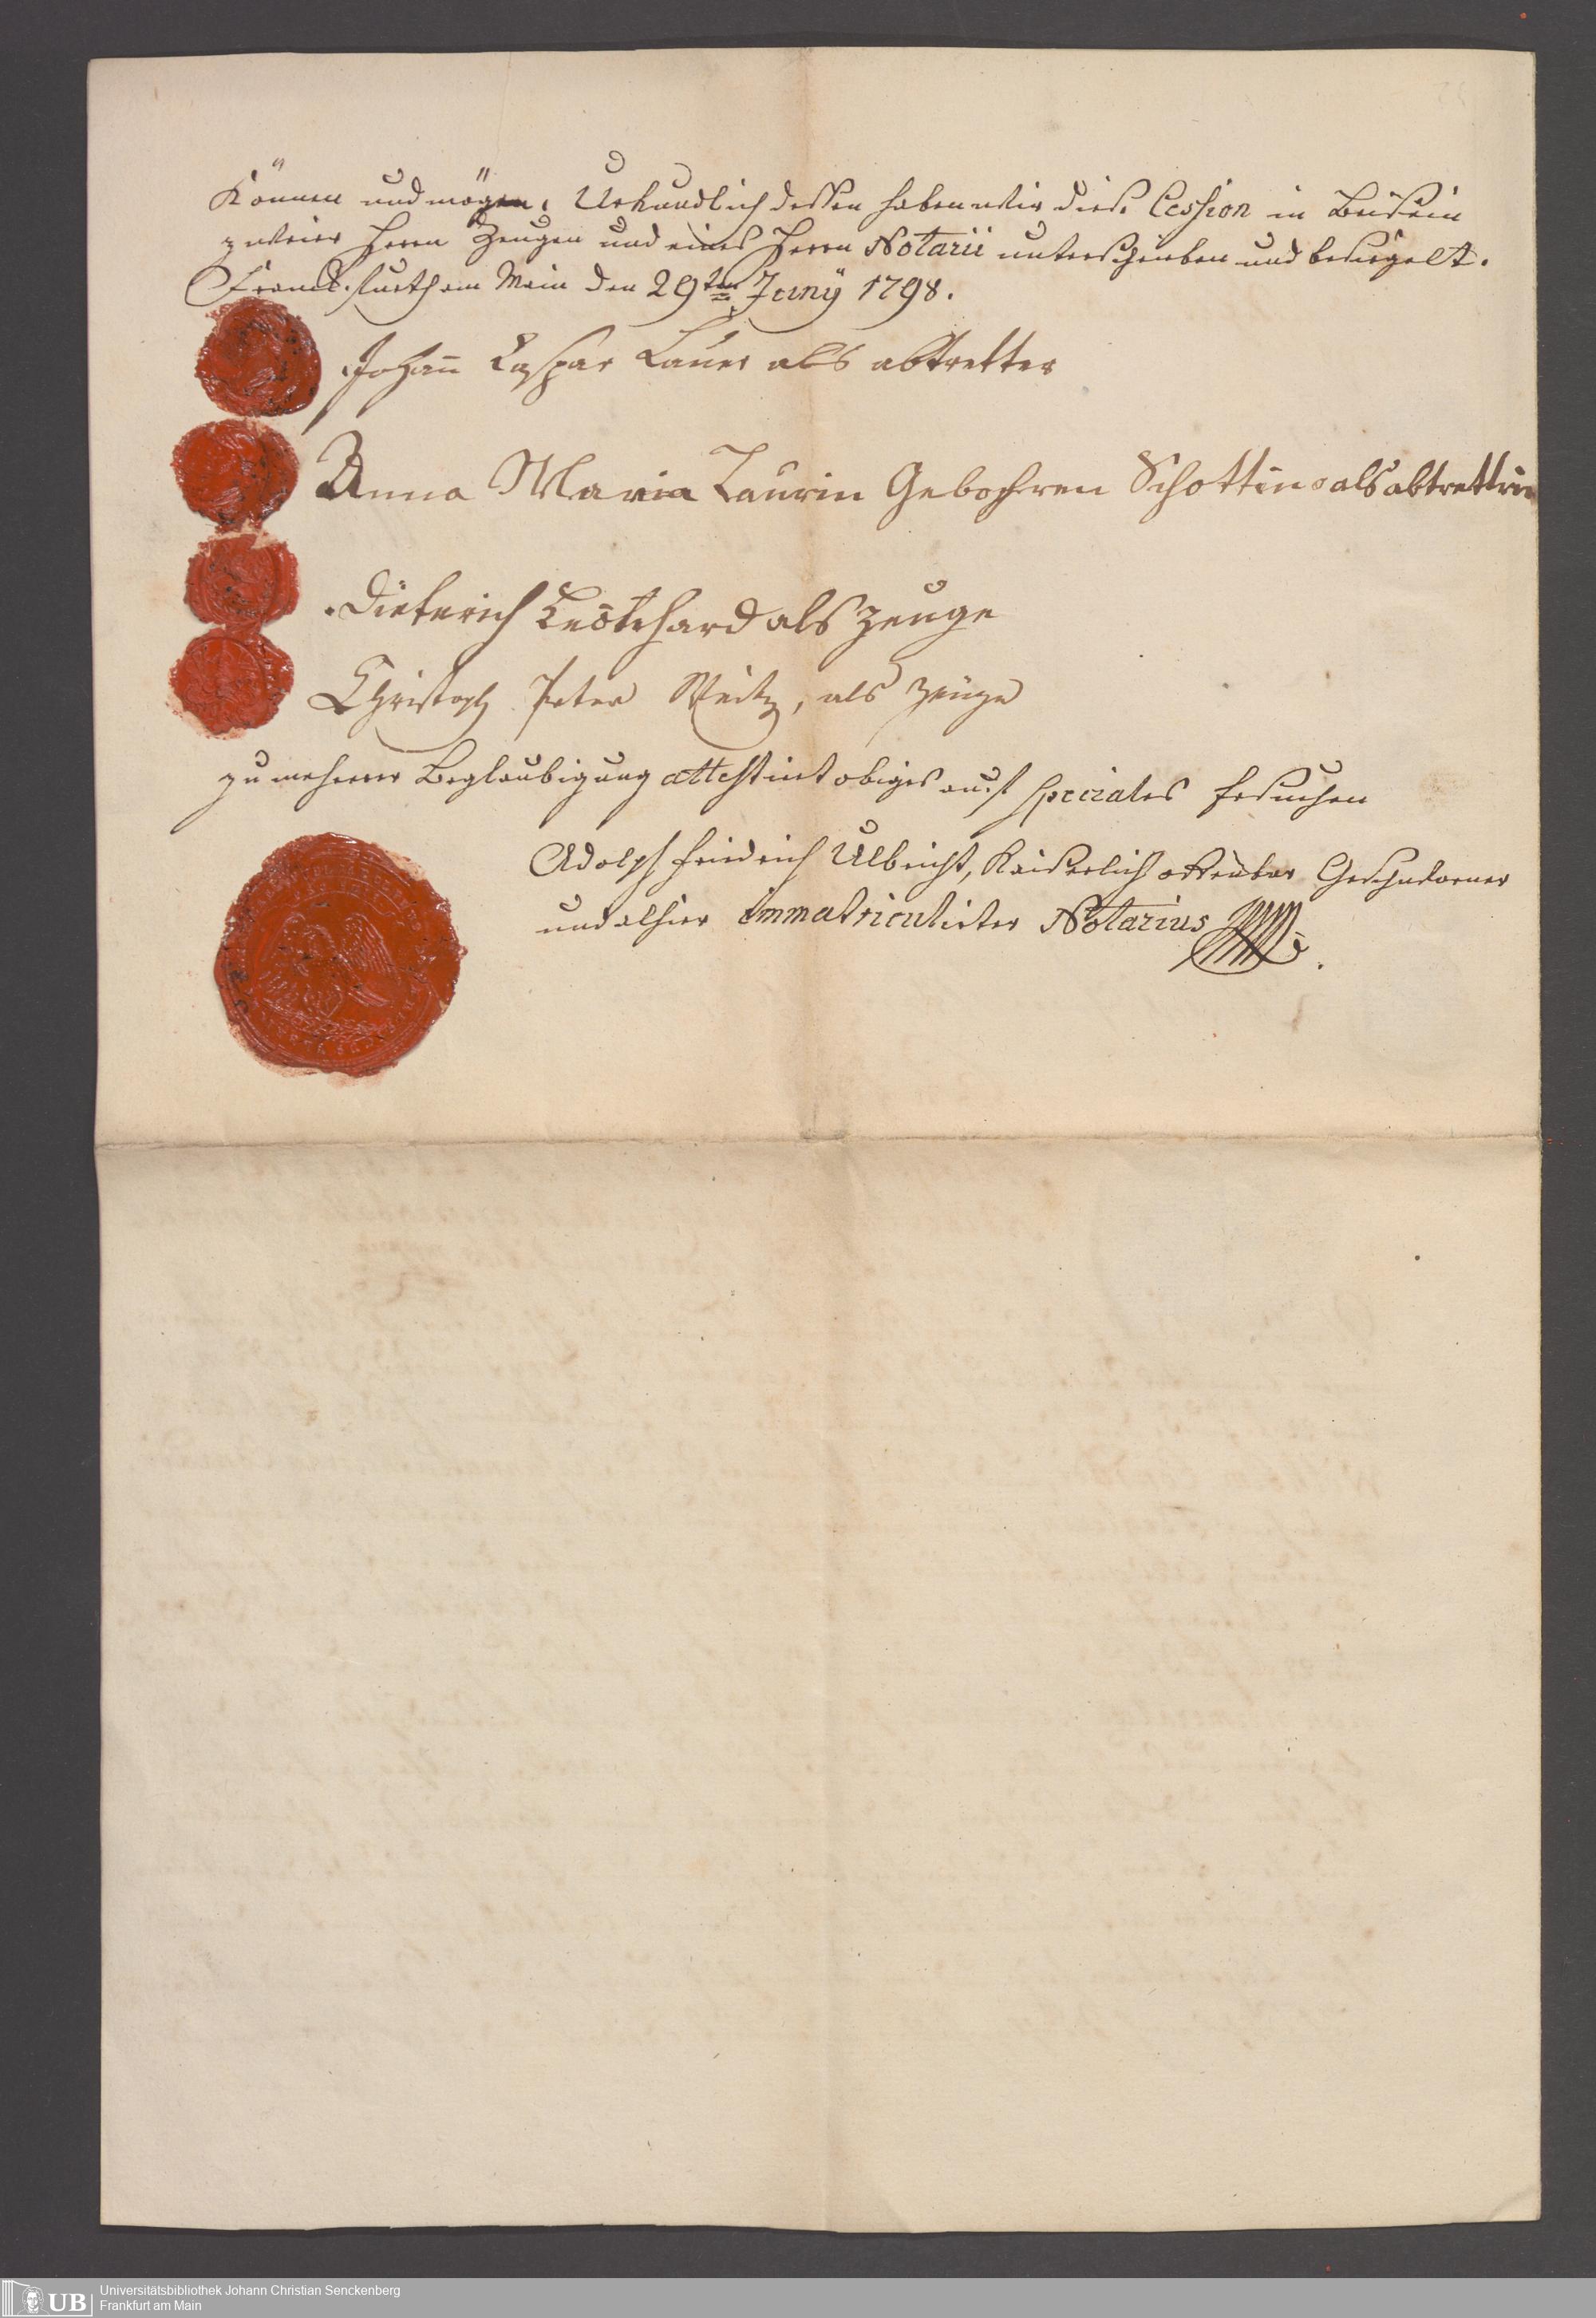 Können und mögen. Urkundlich dessen haben wir diese Cession in Beisein
zweier Herrn Zeugen und eines Herrn Notarii unterschrieben und besiegelt.
Franckfurth am Main den 29ten Juny 1798.
Johann Caspar Lauer als abtretter
Anna Maria Laurin Gebohren Schottin als abtrettrin
Dieterich als Zeuge
Christoph Peter Weitz, als Zeuge
zu mehrerer Beglaubigung attestirt obiges auf speciales Ersuchen
Adolph Friedrich Ulbricht, Kaiserlich offenbar Geschworner
und alhier immatriculirter Notarius
UB
Universitätsbibliothek Johann Christian Senckenberg
Frankfurt am Main